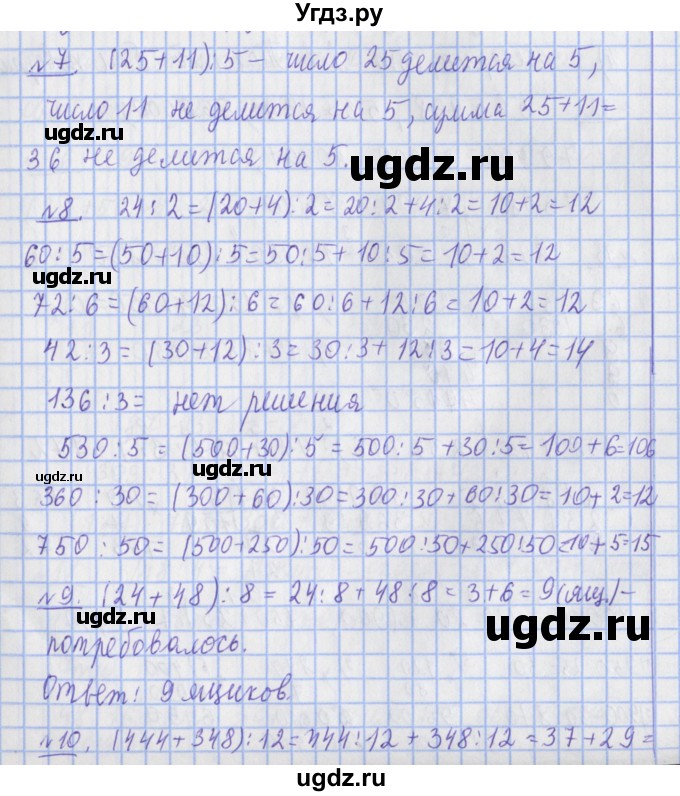 Угдз.ру
№7. (25+11):5 – число 25 делится на 5,
число 11 не делится на 5, сумма 25+11=
ugdz.ru
ugdz.ru
36 не делится на 5.
№8. 24:2=(20+4):2=20:2+4:2=10+2=12
60:5=(50+10):5=50:5+10:5=10+2=12
72:6=(60+12):6=60:6+12:6=10+2=12
42:3=(30+12):3=30:3+12:3=10+4=14
136:3= нет решения
530:5=(500+30):5=500:5+30:5=100+6=106
ugdz.ru
ugdz.ru
360:30=(300+60):30=300:30+60:30=10+2=12
750:50=(500+250):50=500:50+250:50=10+5=15
№9. (24+48):8=24:8+48:8=3+6=9(ящ.)–
ugdz.ru
ugdz.ru
потребовалось.
Ответ: 9 ящиков.
№10. (444+348):12=444:12+348:12=37+29=
ugdz.ru